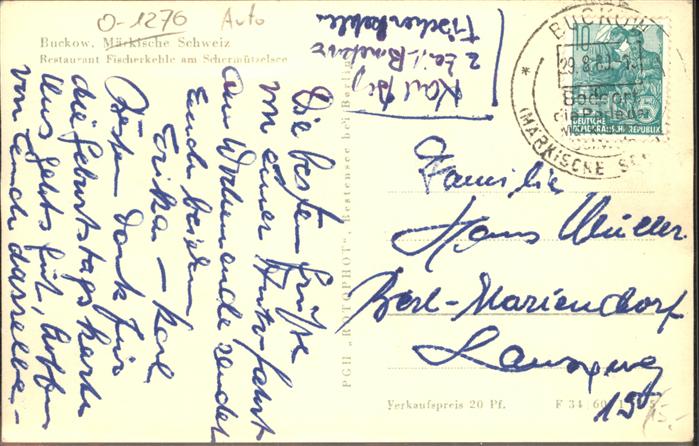 O-1276 Auto
Buckow, Märkische Schweiz
Restaurant Fischerkehle am Schermützelsee
Fischerkehle
BUCKOW
29.8.
(MÄRKISCHE
10
5
DEUTSCHE
DEMOKRATISCHE REPUBLIK
Die besten Grüße
von einer Autofahrt
am Wochenende sendet
Euch beiden
Erika – Karl
Besten Dank für
die Geburtstagskarte
Uns gehts gut, hoffen
von Euch dasselbe –
PGH „ROTOPHOT“, Bestensee bei Berlin
Familie
Hans Müller
Berl-Mariendorf
15
Verkaufspreis 20 Pf.
F 34
15.-